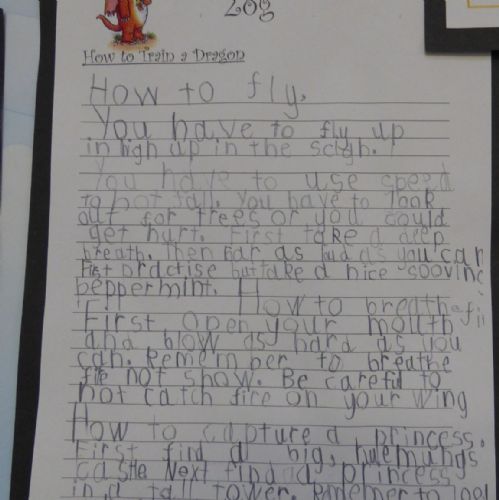 Zog
How to Train a Dragon
How to fly.
You have to fly up
in high up in the scigh.
You have to use speed
to not fall. You have to look
out for trees or you could
get hurt. First take a deep
breath. Then rar as loud as you can
First practise but take a nice soovinc
peppermint. H
How to breath fi
First open your mouth
and blow as hard as you
can. Rememper to breathe
fire not snow. Be careful to
not catch fire on your wing
How to capture a princess.
First find a big,
castle Next find a princess
in a tall tower. Remember